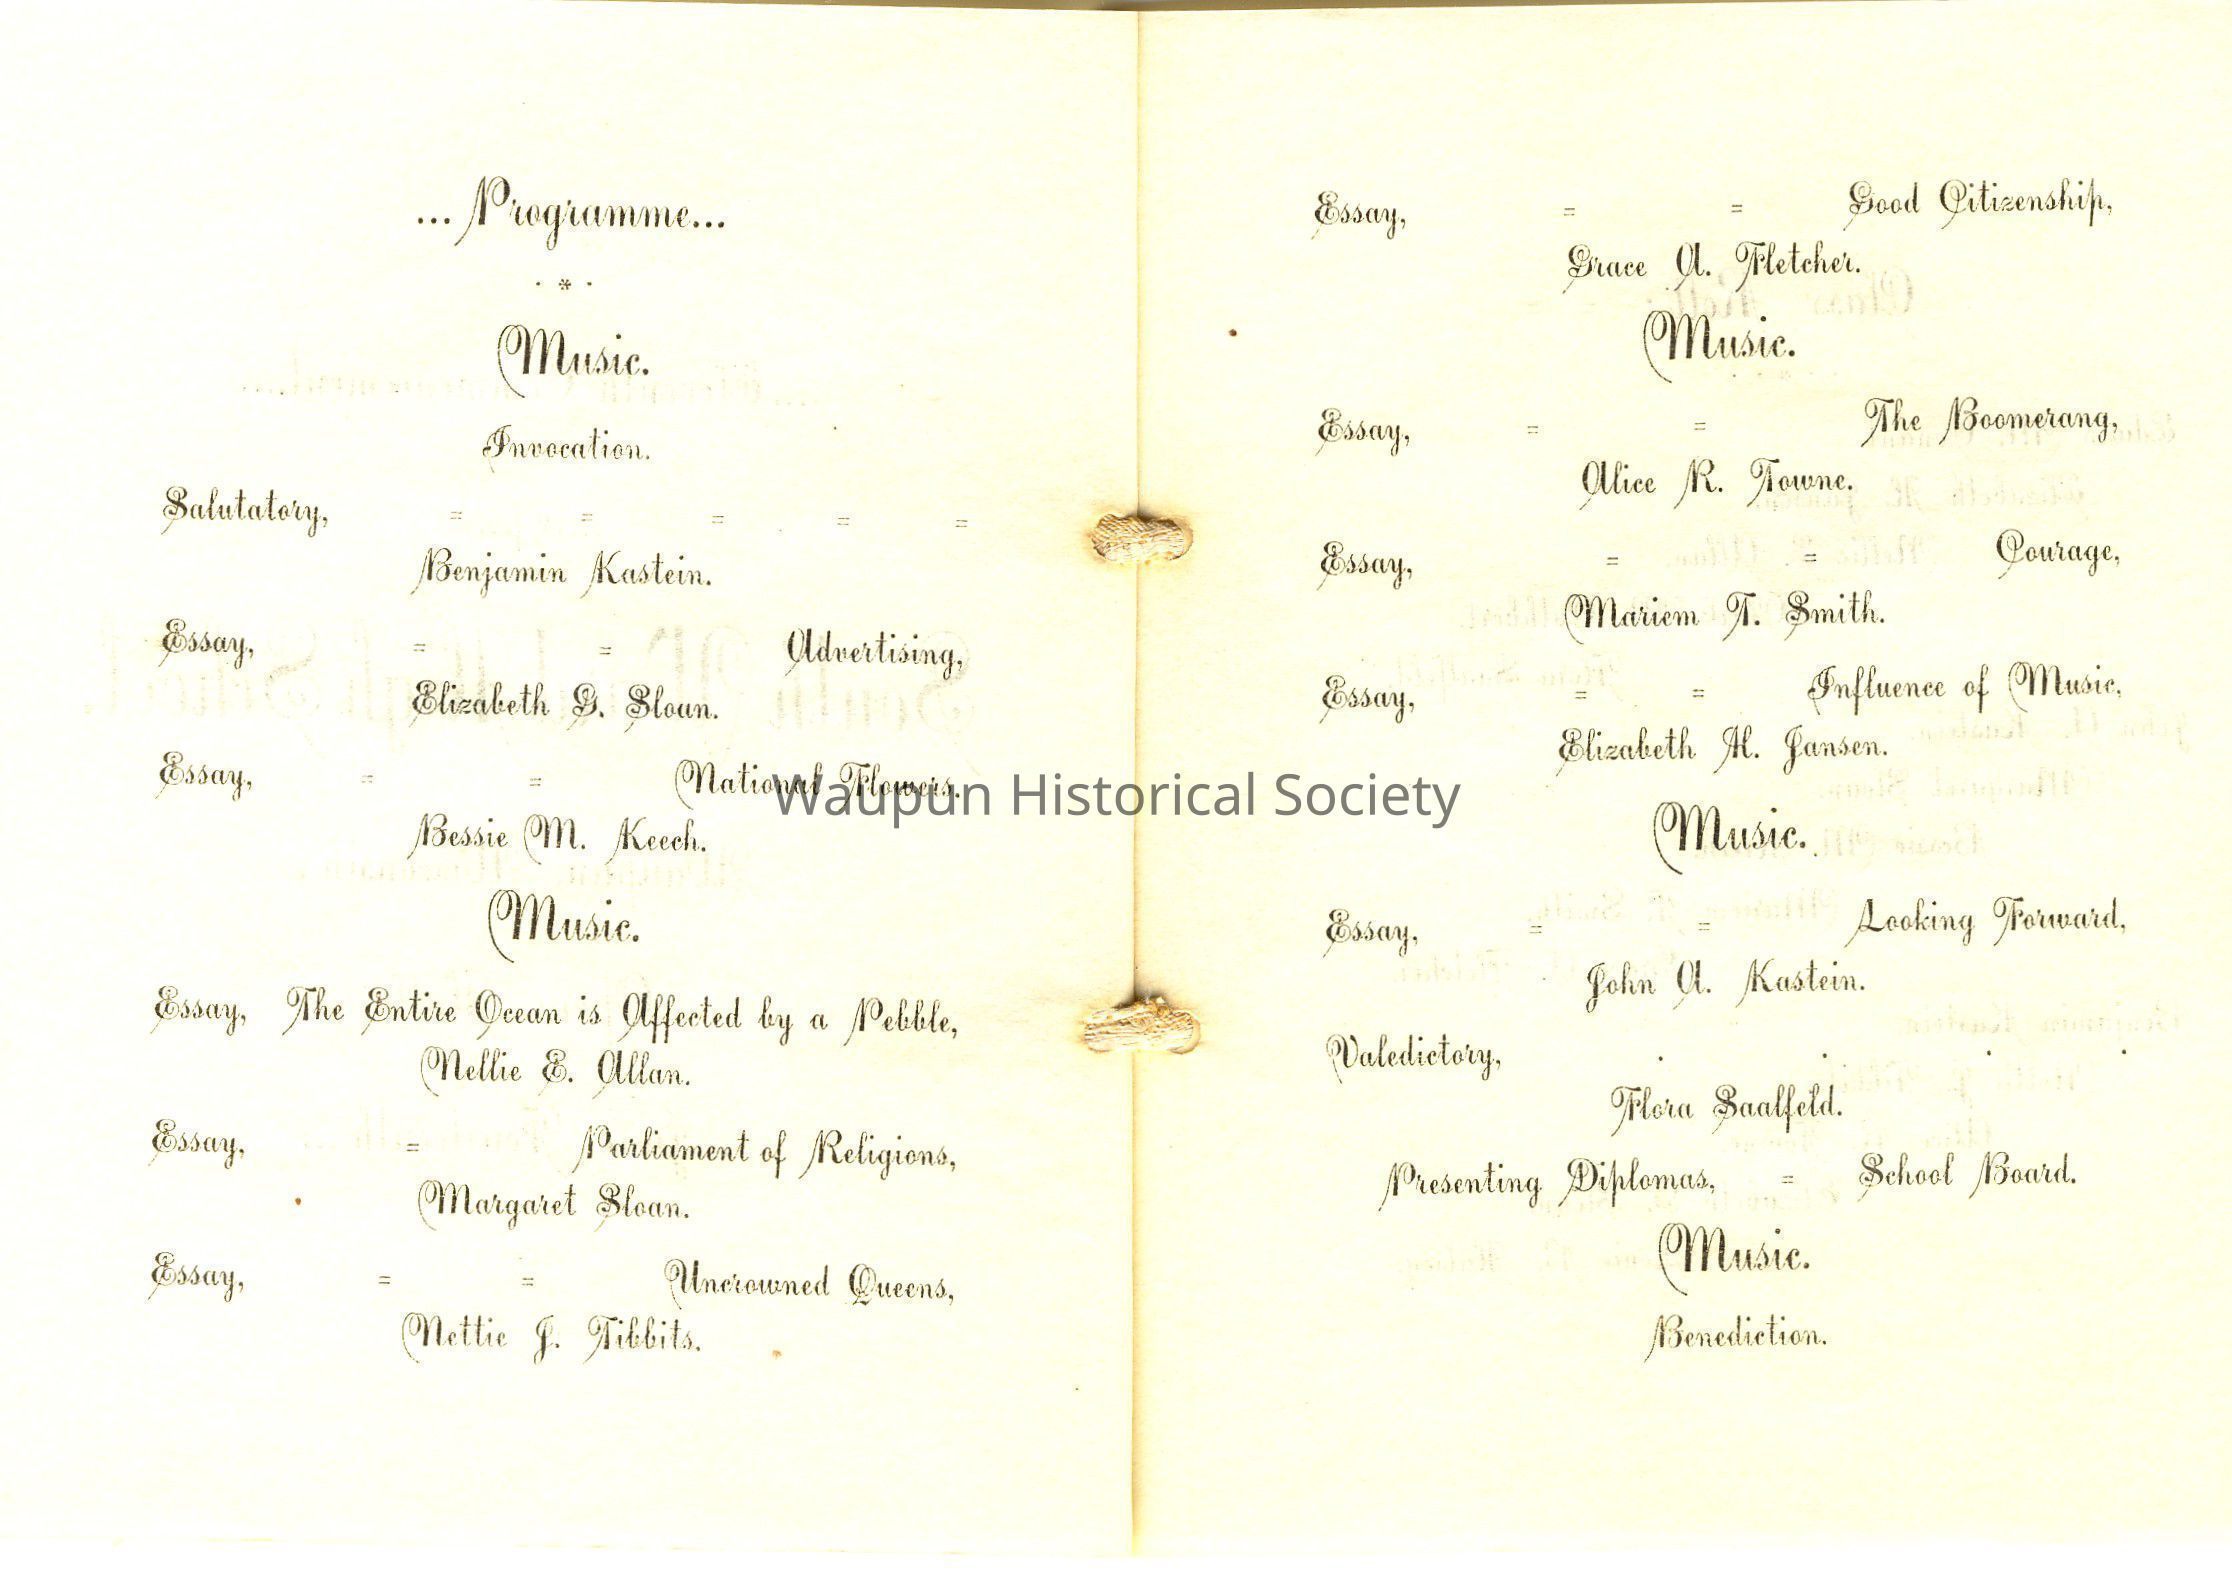 ... Programme...
. * .
Music.
Invocation.
Salutatory, = = = = =
Benjamin Kastein.
Essay, = = Advertising,
Elizabeth G. Sloan.
Essay, = = National Flowers.
Bessie M. Keech.
Music.
Essay, The Entire Ocean is Affected by a Pebble,
Nellie E. Allan.
Essay, = Parliament of Religions,
Margaret Sloan.
Essay, = = Uncrowned Queens,
Nettie J. Tibbits.
Essay, = = Good Citizenship,
Grace A. Fletcher.
Music.
Essay, = = The Boomerang,
Alice R. Towne.
Essay, = = Courage,
Mariem T. Smith.
Essay, = = Influence of Music,
Elizabeth H. Jansen.
Music.
Essay, = = Looking Forward,
John A. Kastein.
Valedictory, . . . .
Flora Saalfeld.
Presenting Diplomas, = School Board.
Music.
Benediction.
Waupun Historical Society